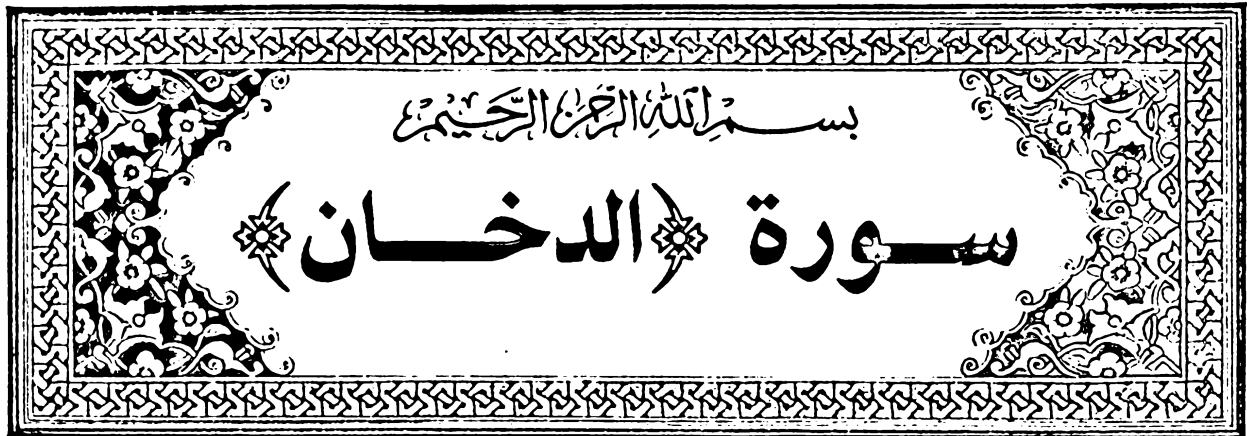 بسم الله الرحمن الرحيم
سورة ﴿الدخان﴾